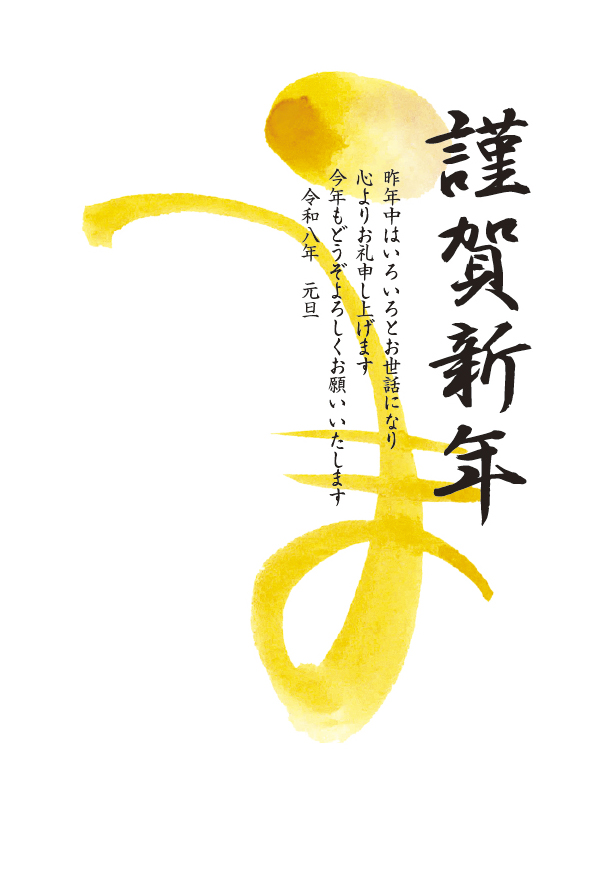 謹賀新年
昨年中はいろいろとお世話になり
心よりお礼申し上げます
今年もどうぞよろしくお願いいたします
令和八年　元旦
うま